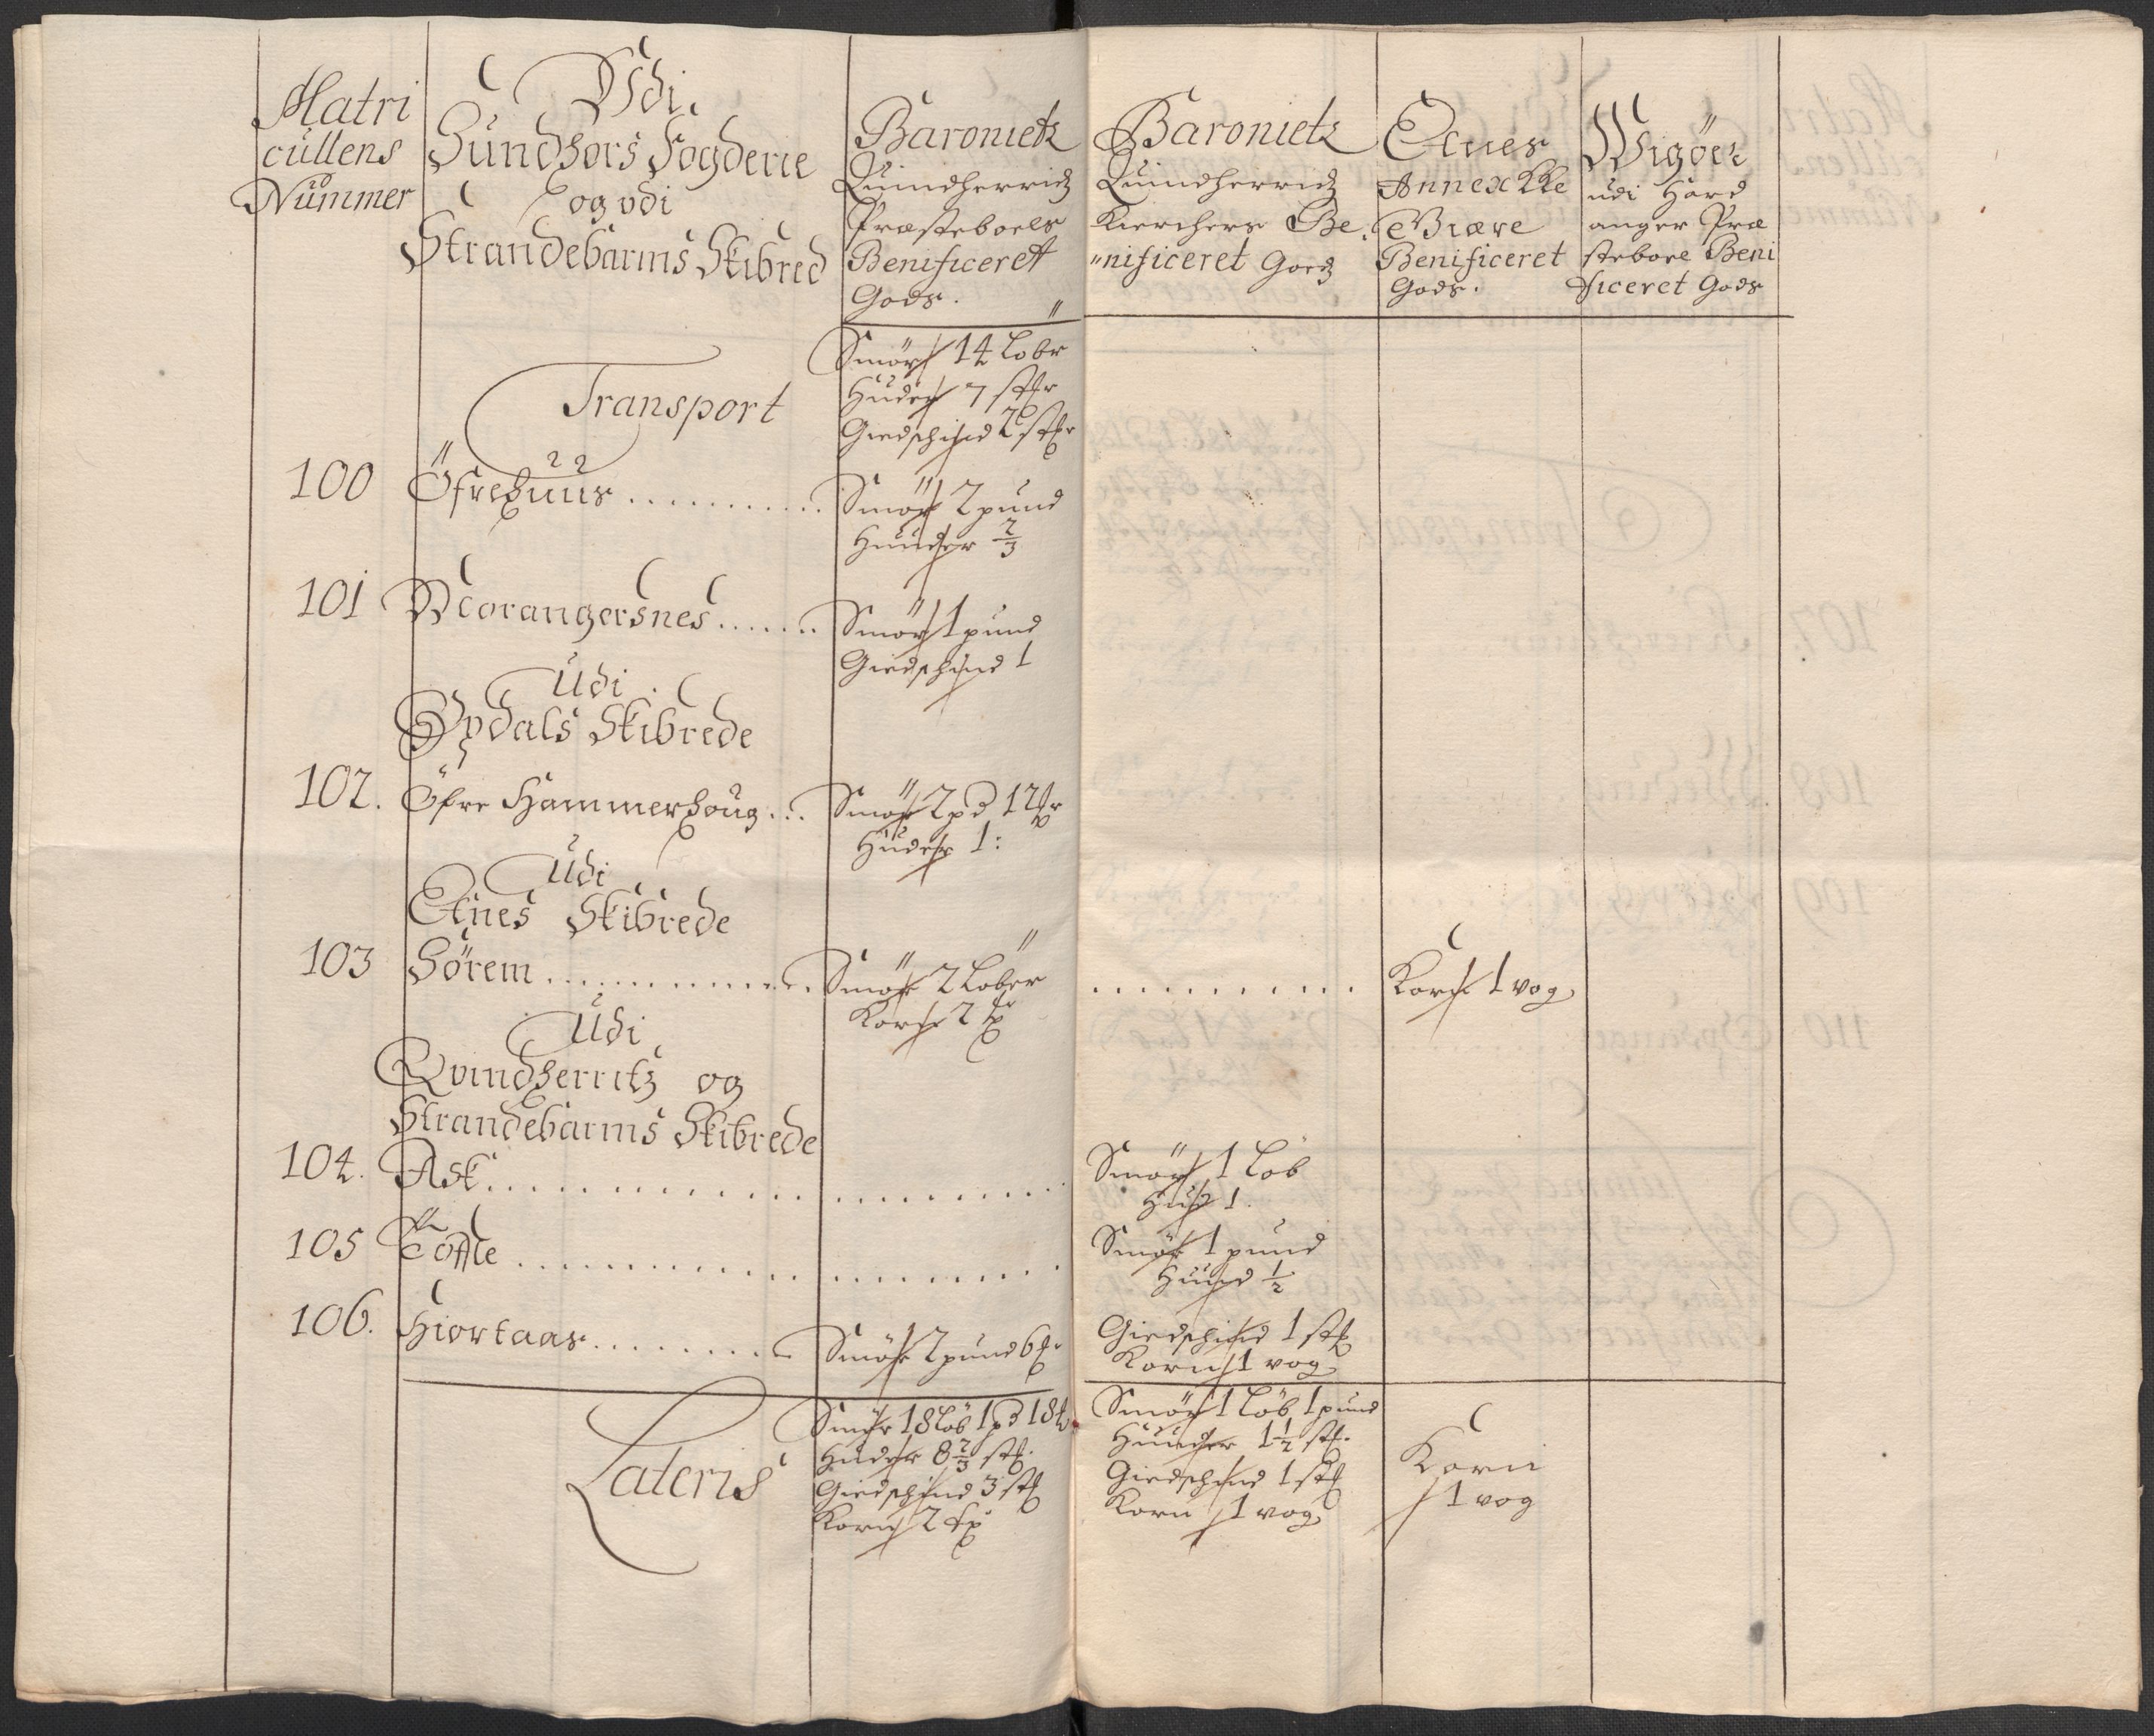 Matri
cullens
Nummer
Udi
Sundhors Fogderie
og udi
Strandebarms Skibred
Baronietz
Quindherridz
Præsteboels
Benificerett
Gods.
Baronietz
Quindherridz
Kierchers Be
"nificeret Goedz
Etnes
Annex Kke
Benificeret
Gods.
Wigöer
udi Hard
anger Præ
steboel Beni
ficeret Gods
Transport
Smör 14 Löbr
Huder 7 str
Giedschind 2 str
100 Öfrehuus
Smör 2 pund
Huuder 2/3
101 Morangersnes
Smör 1 pund
Giedschind 1
Udi
Opdals Skibrede
102. Öfre Hammerhoug
Smör 2 pd 12 mr
Huder 1:
Udi
Etnes Skibrede
103 Sörem
Smör 2 Löber
Korn 2
Korn 1 vog
Udi
Qvindherritz og
Strandebarms Skibrede
104. Ask
Smör 1 Löb
Hud 1.
105 Tofte
Smör 1 pund
Huud 1/2
106. Hiortaas
Smör 2 pund 6
Giedschind 1 st
Korn 1 vog
Lateris
Smör 18 Löb 1 pd 18
Huder 8 2/3 st
Giedschind 3 st
Korn 2
Smör 1 Löb 1 pund
Huuder 1 1/2 st.
Giedschind 1 st
Korn 1 vog
Korn
1 vog